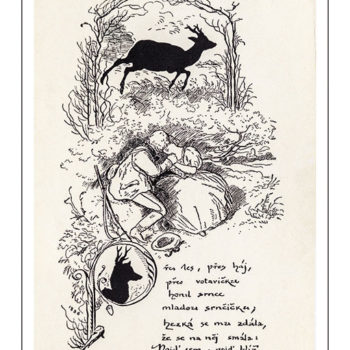 Přes les, přes háj,
přes votavičku
honil srnce
mladou srnčičku;
hezká se mu zdála,
že se na něj smála: